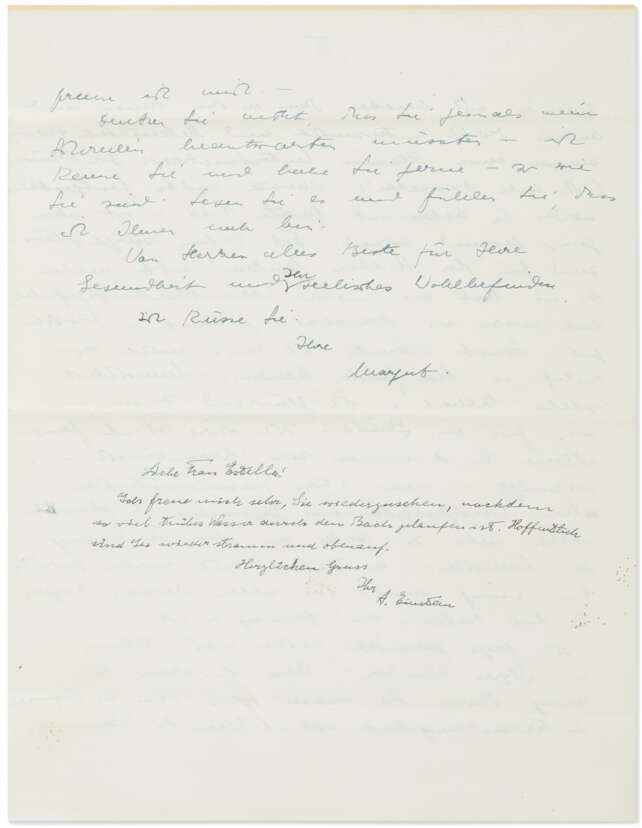 freue ich mich —
Denken Sie nicht, dass Sie jemals mein
Schreiben beantworten müssten — ich
kenne Sie und habe Sie gerne — so wie
Sie sind. Lesen Sie es und fühlen Sie, dass
ich Ihnen nah bin.
Von Herzen alles Beste für Ihre
Gesundheit und Ihr seelisches Wohlbefinden
ich küsse Sie.
Ihre
Margot.
Liebe Frau Estella!
Ich freue mich sehr, Sie wiederzusehen, nachdem
so viel trübes Wasser durch den Bach gelaufen ist. Hoffentlich
sind Sie wieder stramm und obenauf.
Herzlichen Gruss
Ihr
A. Einstein